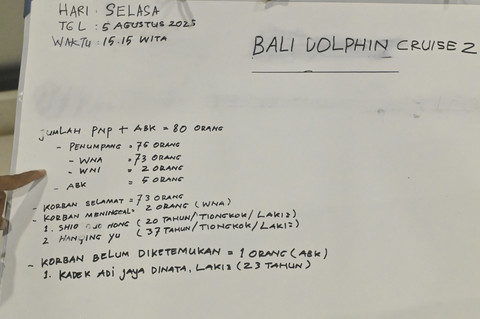 HARI : SELASA
TGL : 5 AGUSTUS 2025
WAKTU : 15.15 WITA
BALI DOLPHIN CRUISE 2
JUMLAH PNP + ABK = 80 ORANG
- PENUMPANG = 75 ORANG
- WNA = 73 ORANG
- WNI = 2 ORANG
- ABK = 5 ORANG
- KORBAN SELAMAT = 73 ORANG
- KORBAN MENINGGAL = 2 ORANG (WNA)
1. SHIO HONG (20 TAHUN/TIONGKOK/LAKI2)
2 HANQING YU (37 TAHUN/TIONGKOK/LAKI2)
- KORBAN BELUM DIKETEMUKAN = 1 ORANG (ABK)
1. KADEK ADI JAYA DINATA, LAKI2 (23 TAHUN)